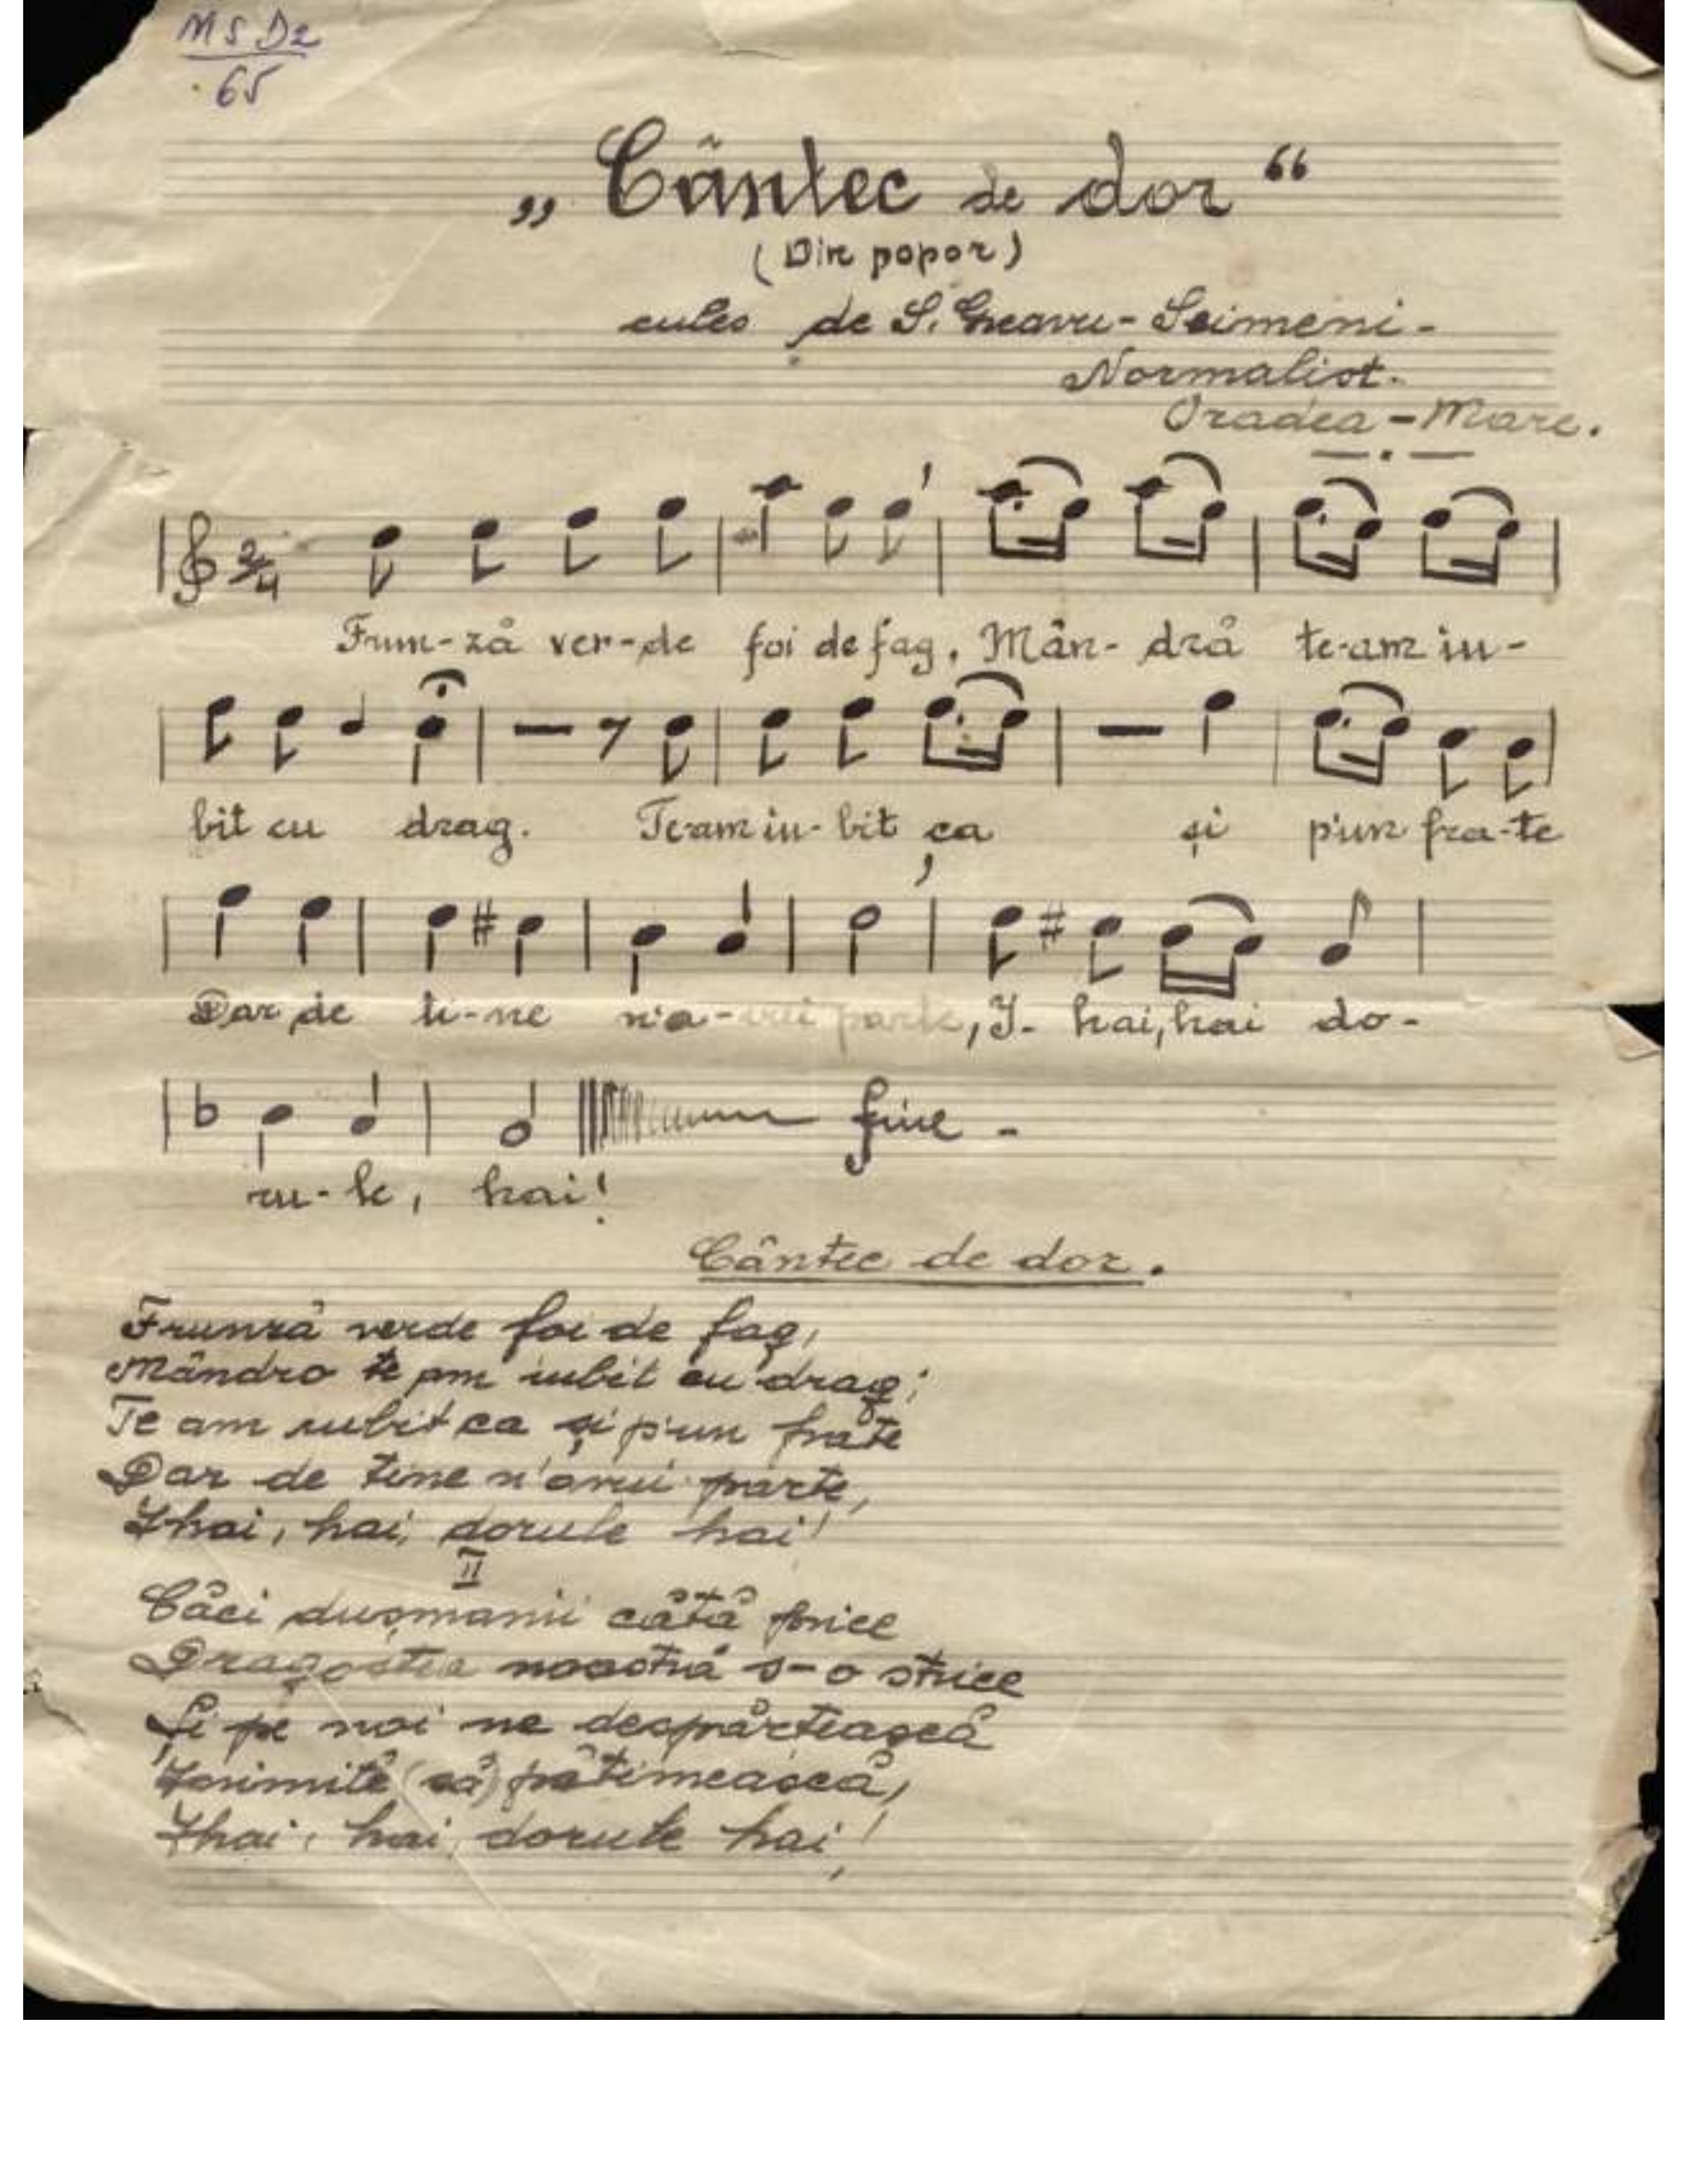 MSD2
65
„Cântec de dor“
(Din popor)
cules de S. Neavu-Seimeni-
Normalist.
Oradea-Mare.
2/4
Frun-ză ver-de foi de fag. Mân-dră te-am iu-
bit cu drag. Te-am iu-bit ca și p'un fra-te
Dar de ti-ne n'a-vui parte, I- hai, hai do-
ru-le, hai! fine -
Cântec de dor.
Frunză verde foi de fag,
Mândro te am iubit cu drag;
Te am iubit ca și p'un frate
Dar de tine n'avui parte,
Ihai, hai, dorule hai!
II
Căci dușmanii cătă price
Dragostea noastră s-o strice
Și pe noi ne despărțească
Inimile (să) pătimească,
Ihai, hai, dorule hai!